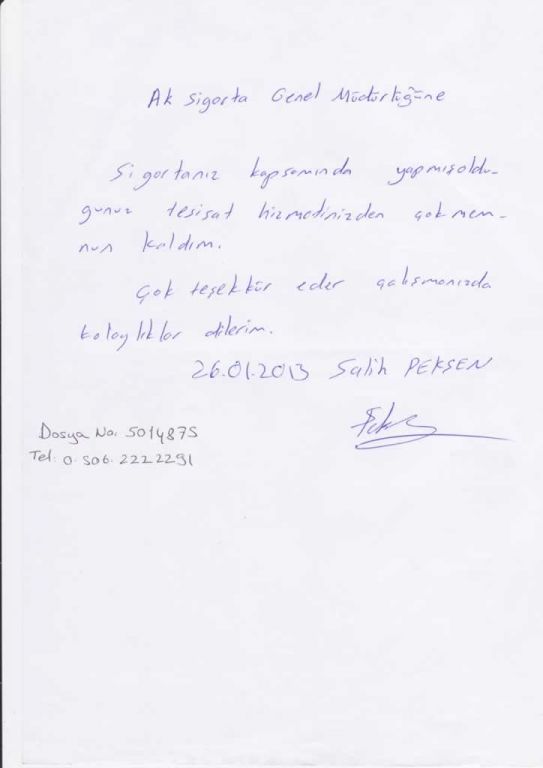 Ak Sigorta Genel Müdürlüğüne
Sigortanız kapsamında yapmışoldu-
gunuz tesisat hizmetinizden çok mem-
nun kaldım.
Çok teşekkür eder çalışmanızda
kolaylıklar dilerim.
26.01.2013 Salih PEKŞEN
Dosya No. 5014875
Tel: 0.506.2222291